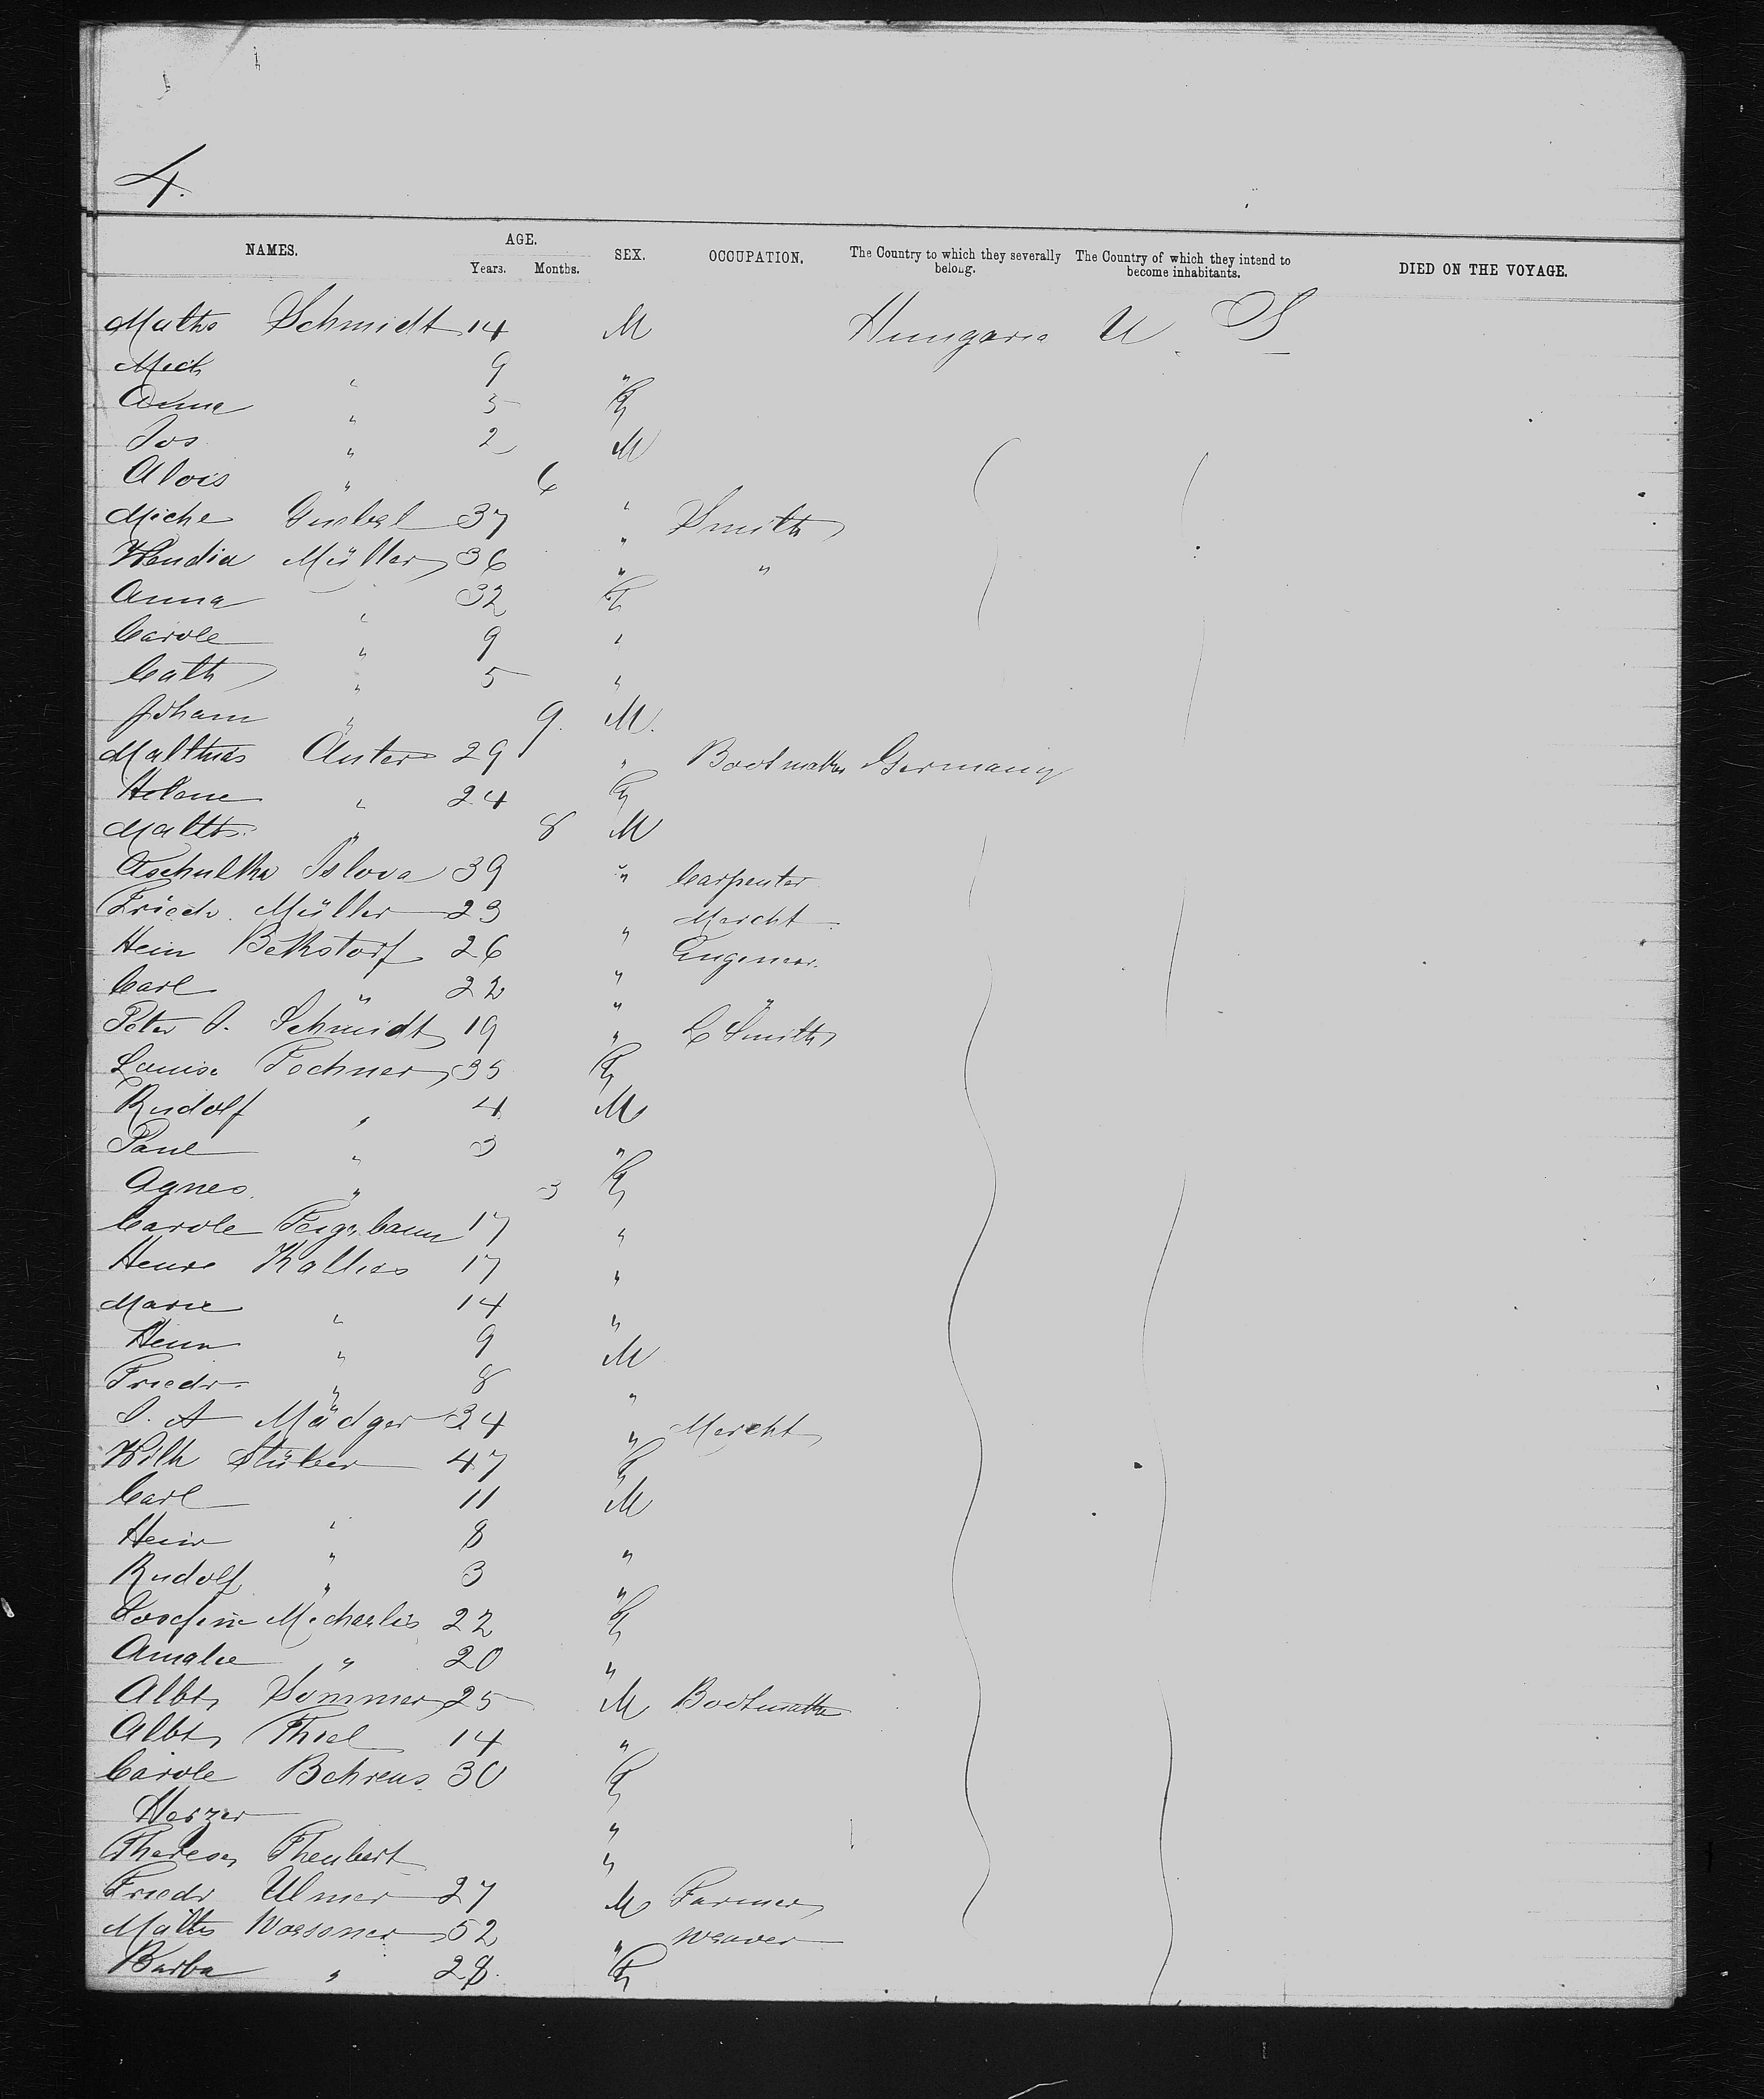 4.
NAMES. AGE. SEX. OCCUPATION. The Country to which they severally belong. The Country of which they intend to become inhabitants. DIED ON THE VOYAGE.
Years. Months.
Maths Schmidt 14 M Hungaria U. S
Mich " 9 "
Anna " 5 F
Jos " 2 M
Alois " 6 "
Miche 37 " Smith
Müller 36 " "
Anna " 32 F
Carole " 9 "
Cath " 5 "
Joham " 9. M.
Matthias Anter 29 " Bootmaker Germany
Helene " 24 F
Matth. " 8 M
39 " Carpenter
Friedr. Müller 23 " Mercht
Hein Bekstorf 26 " Engineer.
Carl " 22 " "
Peter J. Schmidt 19 " Smith
Louise Fochner 35 F
Rudolf " 4 M
Paul " 3 "
Agnes. " 3 F
Carole 17 "
Henre Kallies 17 "
Marie " 14 "
Heinr " 9 M
Friedr. " 8 "
J. A Mädger 34 " Mercht
Wilh Stüber 47 F
Carl " 11 M
Heinr " 8 "
Rudolf " 3 "
Josefine Michaelis 22 F
Amalie " 20 "
Albt Sommer 25 M Bootmaker
Albt Thiel 14 "
Carole Behrens. 30 F
Herzer "
Therese Theubert "
Friedr Ulmer 27 M Farmer
Matts Woessner 52 " weaver
Barba " 28. F